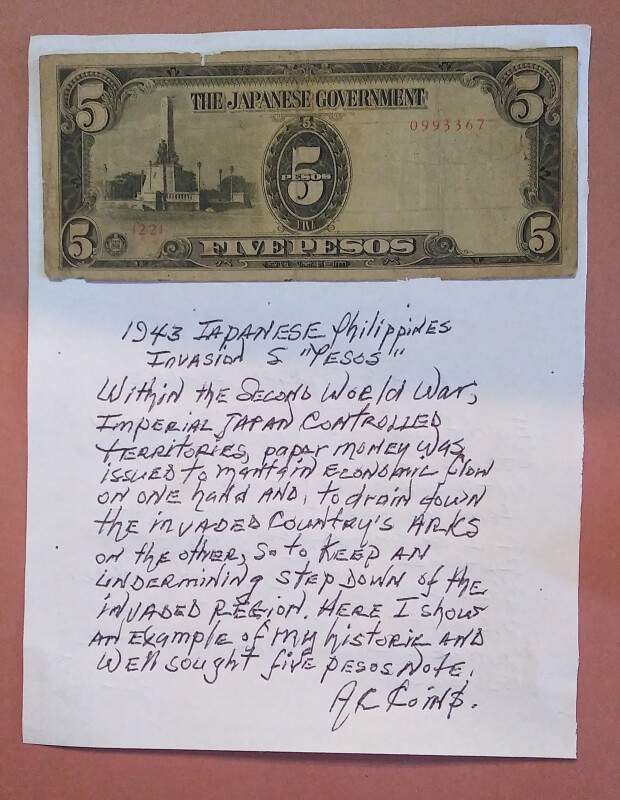 5 5
THE JAPANESE GOVERNMENT
0993367
5
PESOS
FIVE
{22}
5 FIVE PESOS 5
1943 JAPANESE Philippines
INVASION 5 "PESOS"
Within the SECOND WORLD WAR,
IMPERIAL JAPAN CONTROLLED
TERRITORIES, paper money was
issued to mantain ECONOMIC flow
on one hand AND, to drain down
the INVADED COUNTRY'S ARKS
on the other, so to KEEP AN
UNDERMINING STEP DOWN of the
INVADED REGION. HERE I show
AN EXAMPLE of my historic AND
Well sought five pesos Note.
AR Coin$.